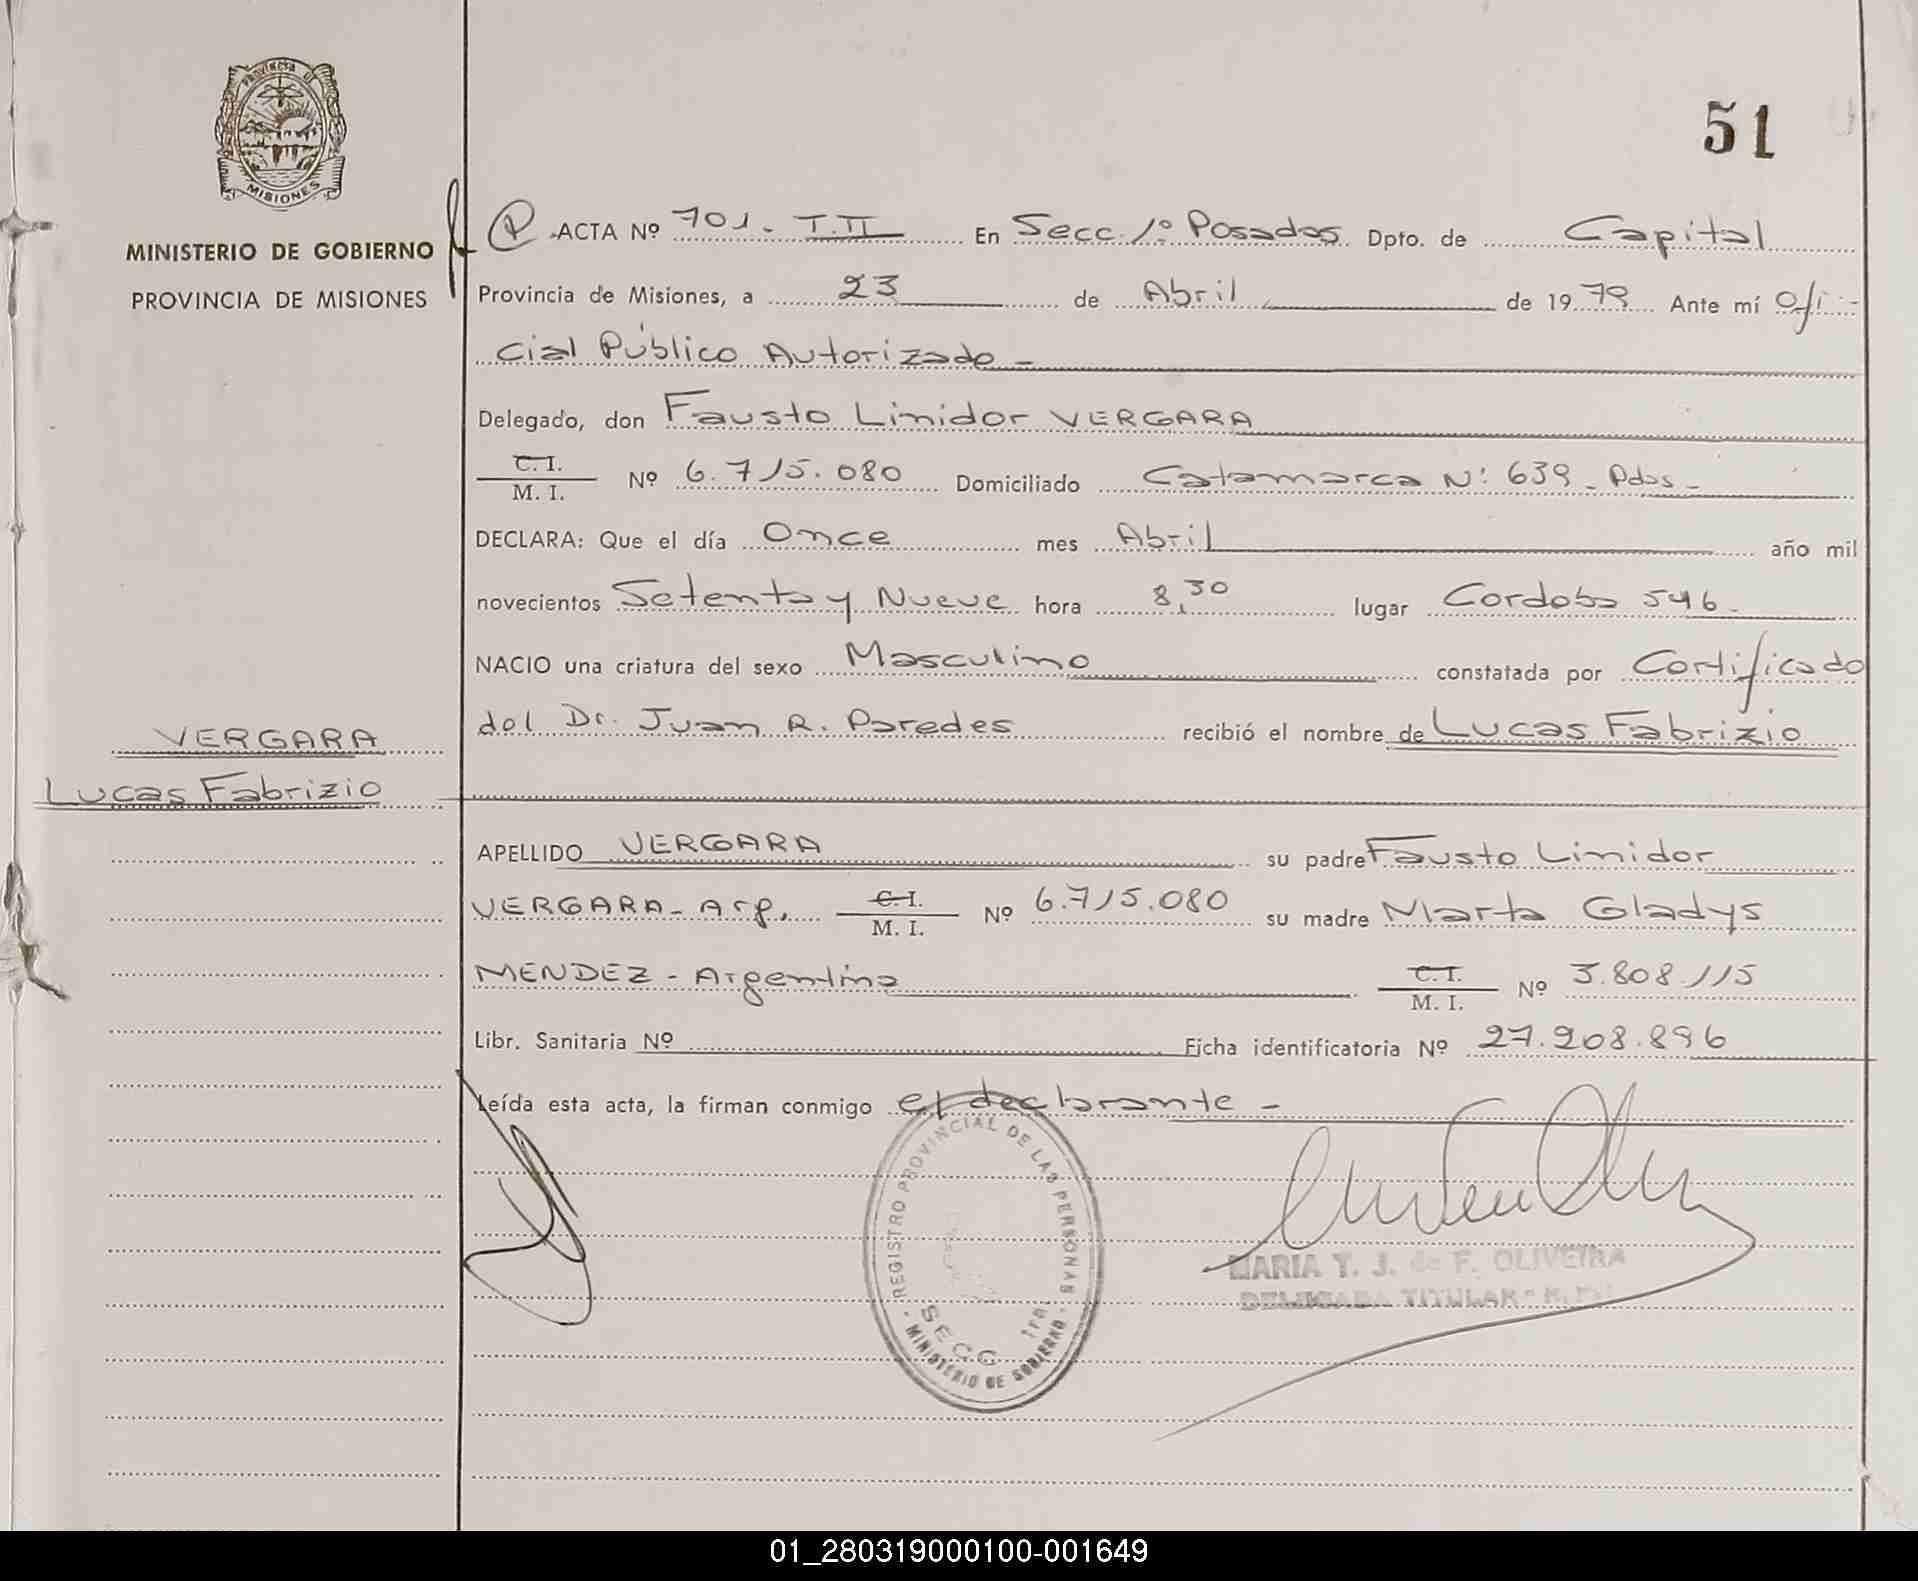 PROVINCIA DE
MISIONES
MINISTERIO DE GOBIERNO
PROVINCIA DE MISIONES
51
ACTA Nº 701. T.II En Secc. 1º Posadas Dpto. de Capital
Provincia de Misiones, a 23 de Abril de 1979 Ante mí Ofi-
cial Público Autorizado -
Delegado, don Fausto Linidor VERGARA
C.I.
M. I. Nº 6.715.080 Domiciliado Catamarca Nº 639 - Pdas -
DECLARA: Que el día Once mes Abril año mil
novecientos Setenta y Nueve hora 8,30 lugar Cordoba 546.
NACIO una criatura del sexo Masculino constatada por Certificado
del Dr. Juan R. Paredes recibió el nombre de Lucas Fabrizio
VERGARA
Lucas Fabrizio
APELLIDO VERGARA su padre Fausto Linidor
VERGARA - Arg. C.I.
M. I. Nº 6.715.080 su madre Marta Gladys
MENDEZ - Argentina C.I.
M. I. Nº 3.808.115
Libr. Sanitaria Nº Ficha identificatoria Nº 27.208.896
Leída esta acta, la firman conmigo el declarante -
REGISTRO PROVINCIAL DE LAS PERSONAS
SECC 1ra.
MINISTERIO DE GOBIERNO
MARIA T. J. de F. OLIVEIRA
DELEGADA TITULAR
01_280319000100-001649